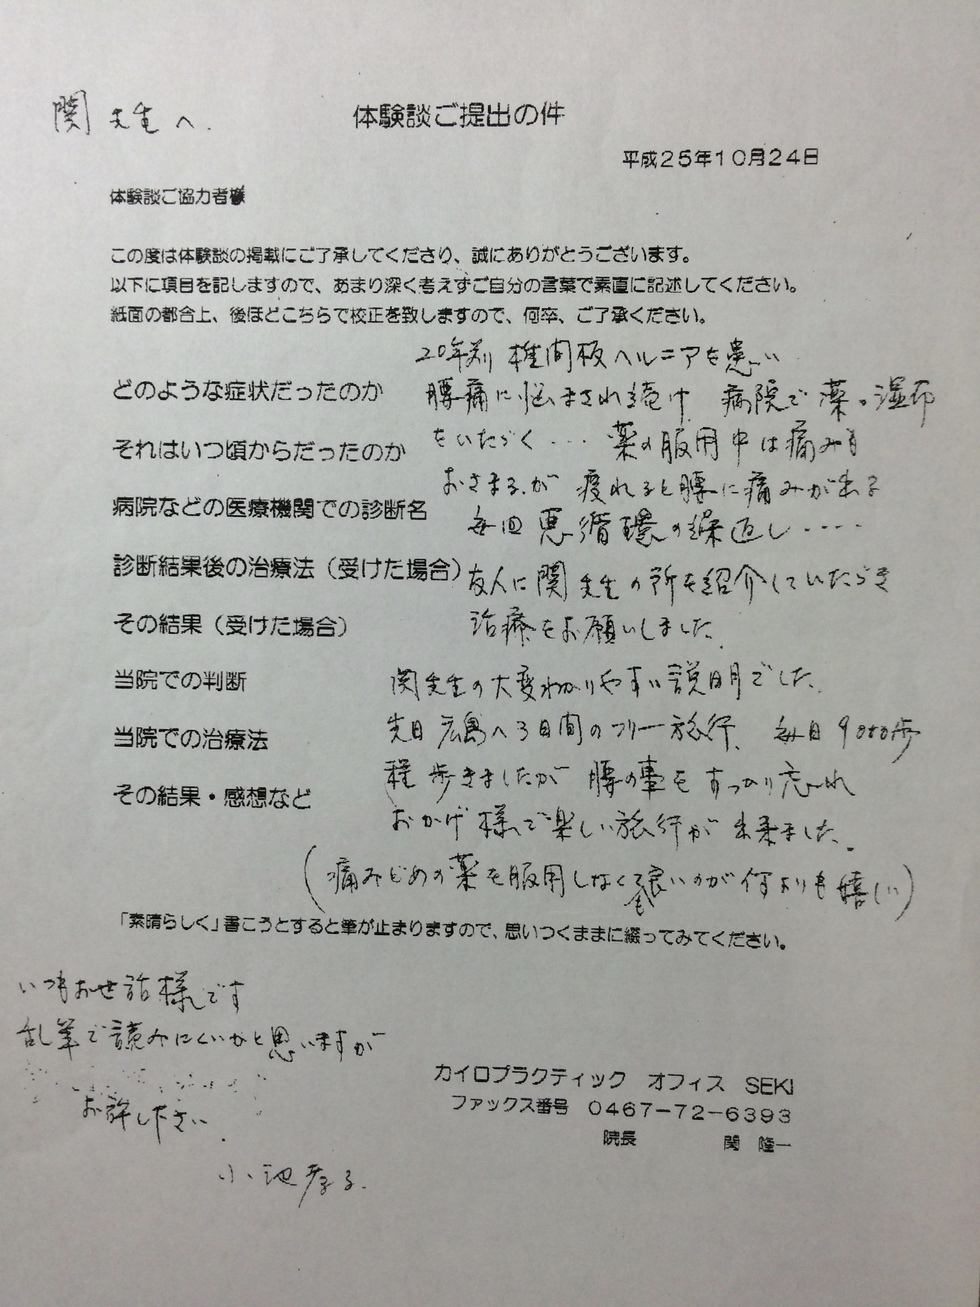 関先生へ
体験談ご提出の件
平成25年10月24日
体験談ご協力者様
この度は体験談の掲載にご了承してくださり、誠にありがとうございます。
以下に項目を記しますので、あまり深く考えずご自分の言葉で素直に記述してください。
紙面の都合上、後ほどこちらで校正を致しますので、何卒、ご了承ください。
20年前 椎間板ヘルニアを患い
どのような症状だったのか
腰痛に悩まされ続け 病院で薬、湿布
をいただく・・・ 薬の服用中は痛みも
それはいつ頃からだったのか
おさまるが 疲れると腰に痛みが出る
病院などの医療機関での診断名
毎回 悪循環の繰返し・・・・
診断結果後の治療法（受けた場合）
友人に関先生の所を紹介していただき
その結果（受けた場合）
治療をお願いしました。
当院での判断
関先生の大変わかりやすい説明でした。
当院での治療法
先日 広島へ3日間のフリー旅行、 毎日9000歩
程 歩きましたが 腰の事もすっかり忘れ
その結果・感想など
おかげ様で楽しい旅行が出来ました。
（痛みどめの薬を服用しなくても良いのが何よりも嬉しい）
「素晴らしく」書こうとすると筆が止まりますので、思いつくままに綴ってみてください。
いつもお世話様です
乱筆で読みにくいかと思いますが
お許し下さい。
カイロプラクティック オフィス SEKI
ファックス番号 0467-72-6393
院長 関 隆一
小池孝子